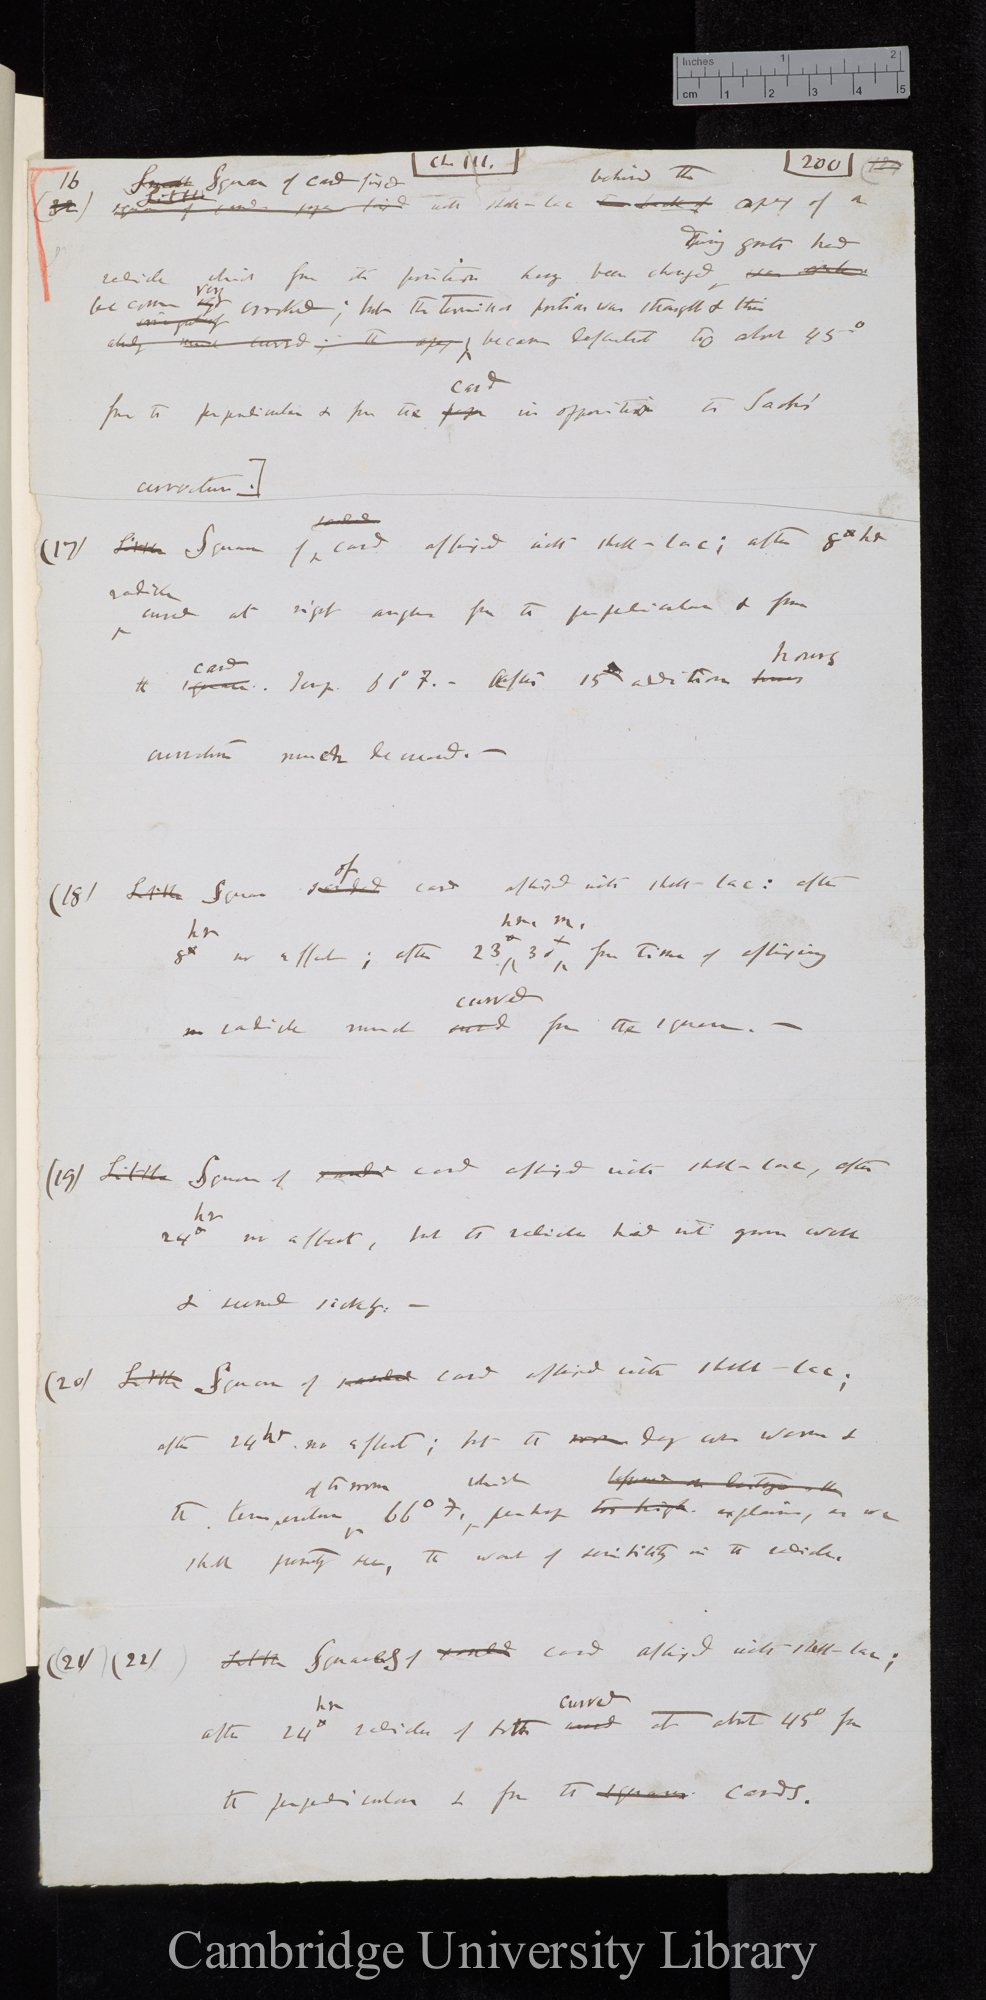 Inches 1 2
cm 1 2 3 4 5
Ch. III. 200
16 Square of card fixed behind the
Little
with shell-lac apex of a
during growth had
radicle which from its position having been changed
become very crooked; but the terminal portion was straight & this
became deflected to about 45°
card
from the perpendicular & from the in opposition to Sachs'
curvature.]
sanded
(17) Little Square of card affixed with shell-lac; after 8 hr
radicle
curved at right angles from the perpendicular & from
card hours
the square. Temp. 61° F. - After 15 additional hours
curvature much decreased. —
of
(18) Little Square sanded card affixed with shell-lac: after
hr hrs. m.
8 no effect; after 23 30 from time of affixing
curved
radicle much from the square. —
(19) Little Square of sanded card affixed with shell-lac, after
hr
24 no effect, but the radicle had not grown well
& seemed sickly. —
(20) Little Square of sanded card affixed with shell-lac;
after 24 hr no effect; but the room day was warm &
of the room which
the temperature 66° F., perhaps too high explains, as we
shall presently see, the want of sensibility in the radicle.
(21) (22) Little Squares of sanded card affixed with shell-lac;
hr curved
after 24 radicles of both at about 45° from
the perpendicular & from the squares cards.
Cambridge University Library